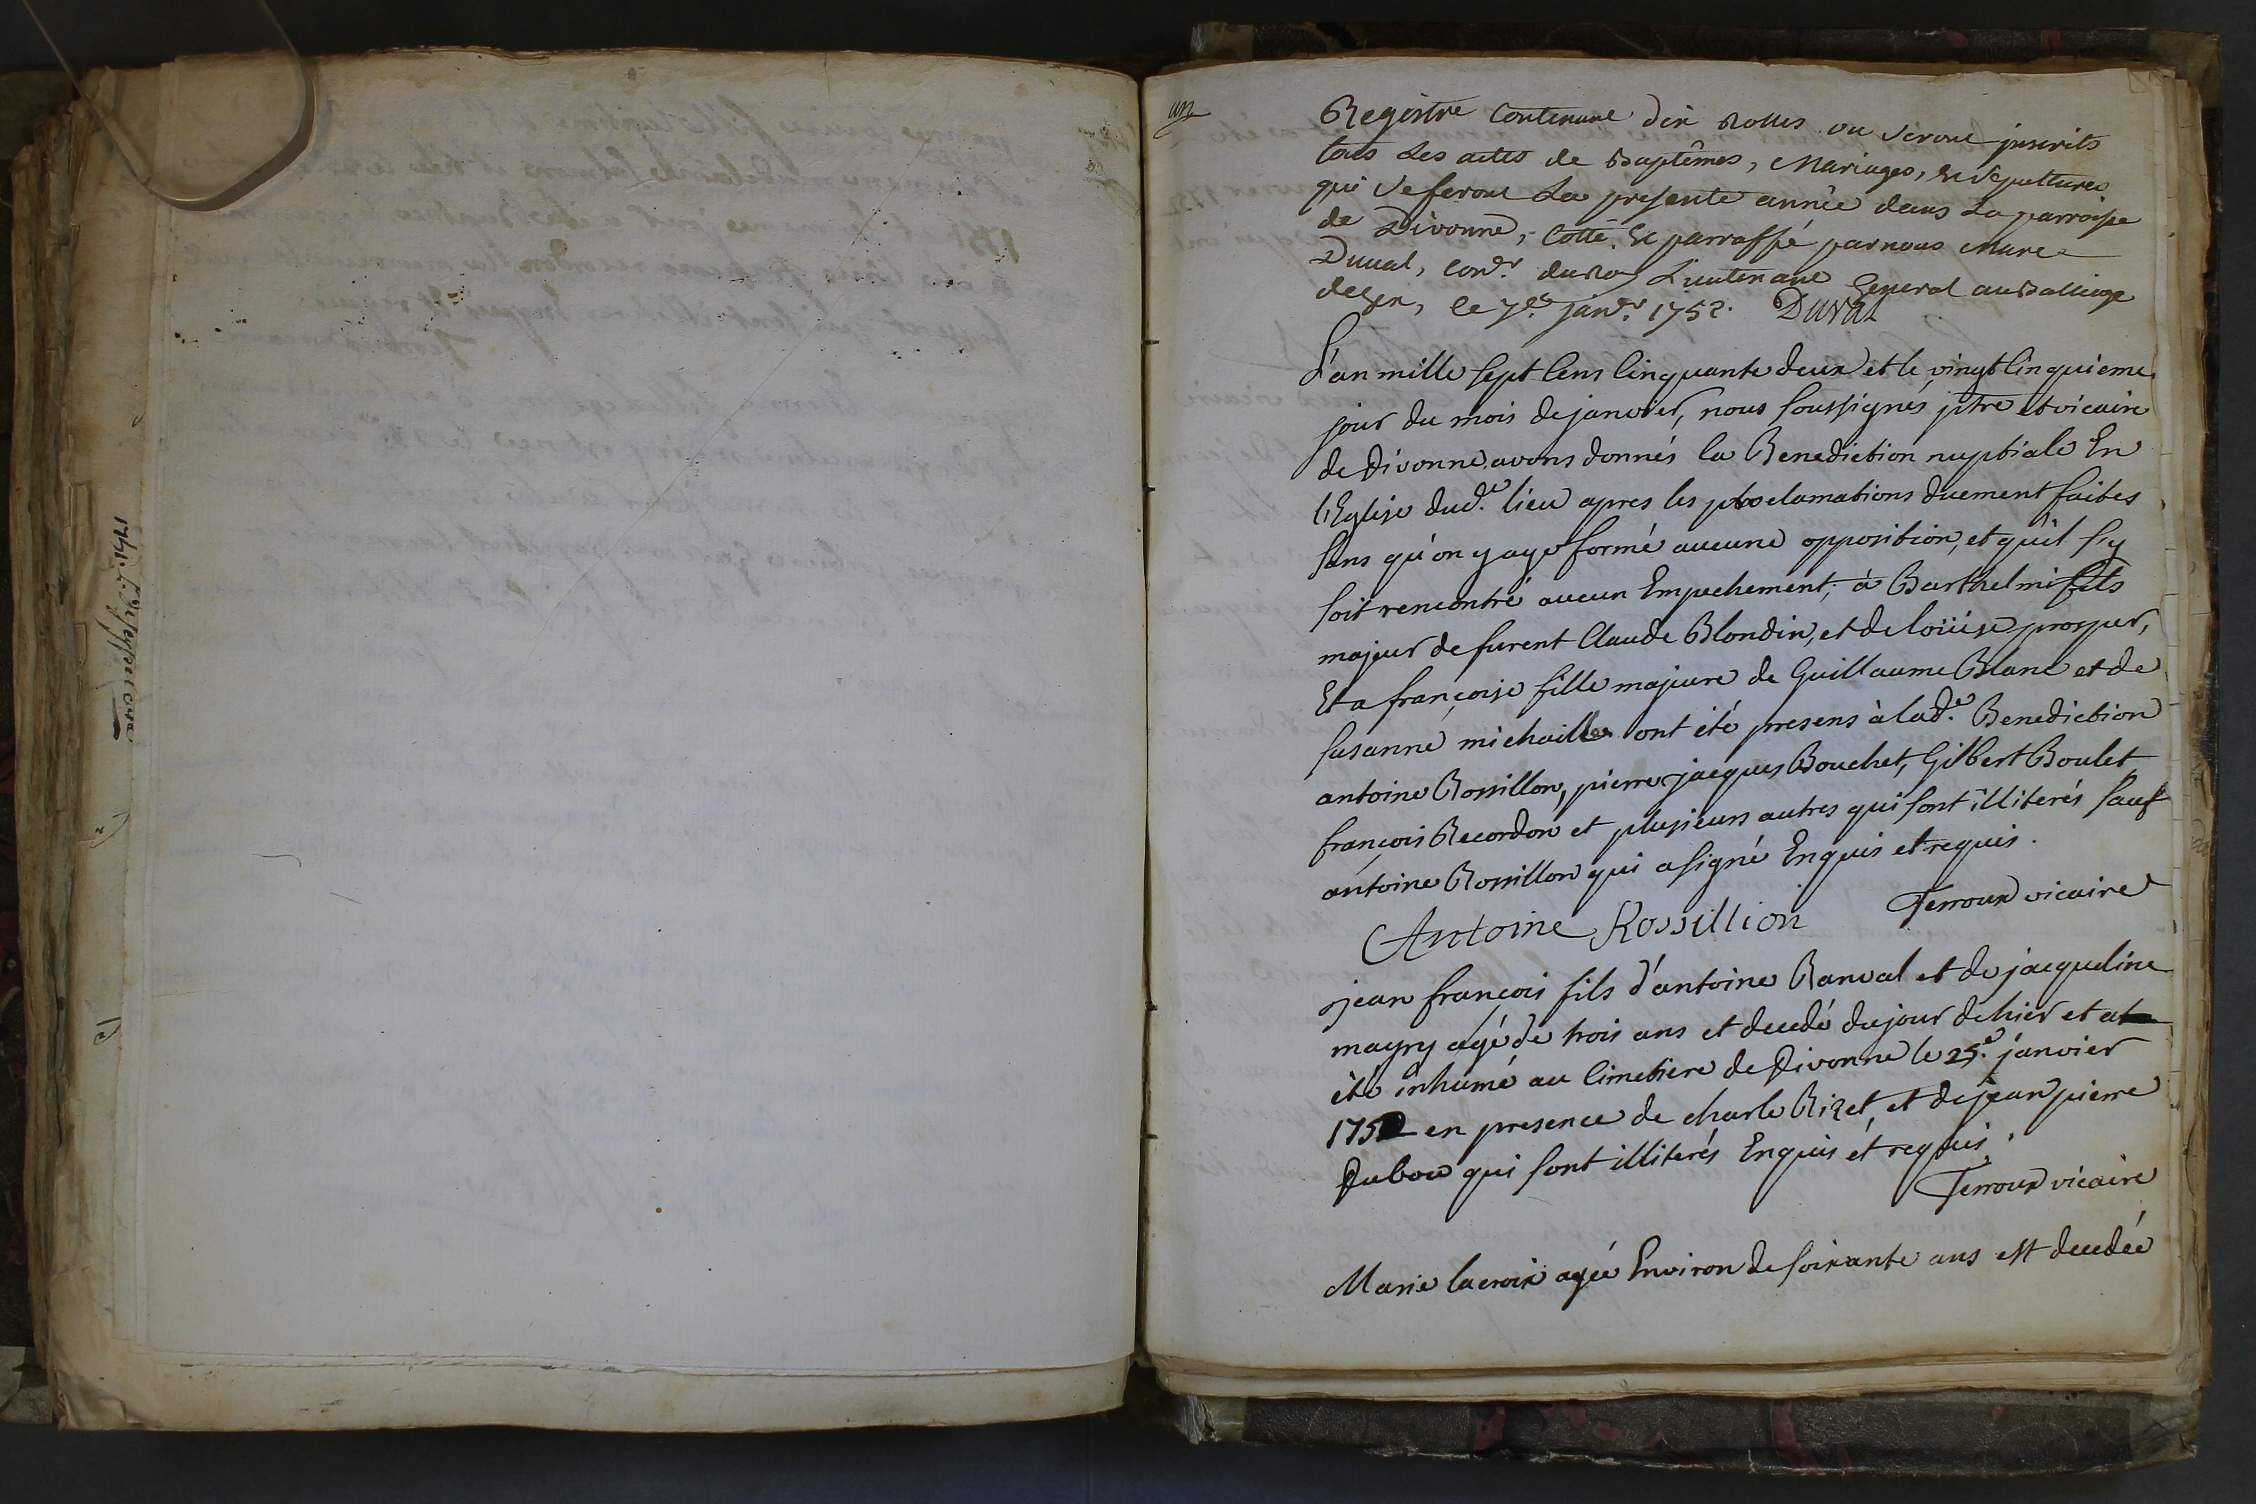 un
Registre Contenant dix Rolles ou seront inscrits
tous les actes de Baptêmes, Mariages, et sepultures
qui se feront La presente année dans la parroisse
de Divonne, Cotté et parraffé par nous Marc
Duval, Con.er du Roy Lieutenant General au Balliage
de Gex, le 7.e janv.r 1752. Duval
L'an mille sept Cens Cinquante deux et le vingt Cinquieme
jour du mois de janvier, nous soussignés ptre et vicaire
de Divonne avons donnés la Benediction nuptiale En
l'Eglise dud.e lieu apres les proclamations duement faites
sans qu'on y aye formé aucune opposition, et qu'il s'y
soit rencontré aucun Empechement, à Barthelmi fils
majeur de furent Claude Blondin, et de loüise prosper,
Et a françoise fille majeure de Guillaume Blanc et de
susanne michaille ont été presens à lad.e Benediction
antoine Rossillon, pierre jacques Bouchet, Gilbert Boulet
françois Recordon et plusieurs autres qui sont illiterés sauf
antoine Rossillon qui a signé Enquis et requis.
Antoine Rossillion Terroux vicaire
jean françois fils d'antoine Ranval et de jacqueline
magny agé de trois ans et decedé du jour de hier et at
été inhumé au Cimetiere de Divonne le 25.e janvier
1752 en presence de charle Rizet, et de jean pierre
Dubou qui sont illiterés Enquis et requis.
Terroux vicaire
Marie lacroix agée Environ de soixante ans est decedée